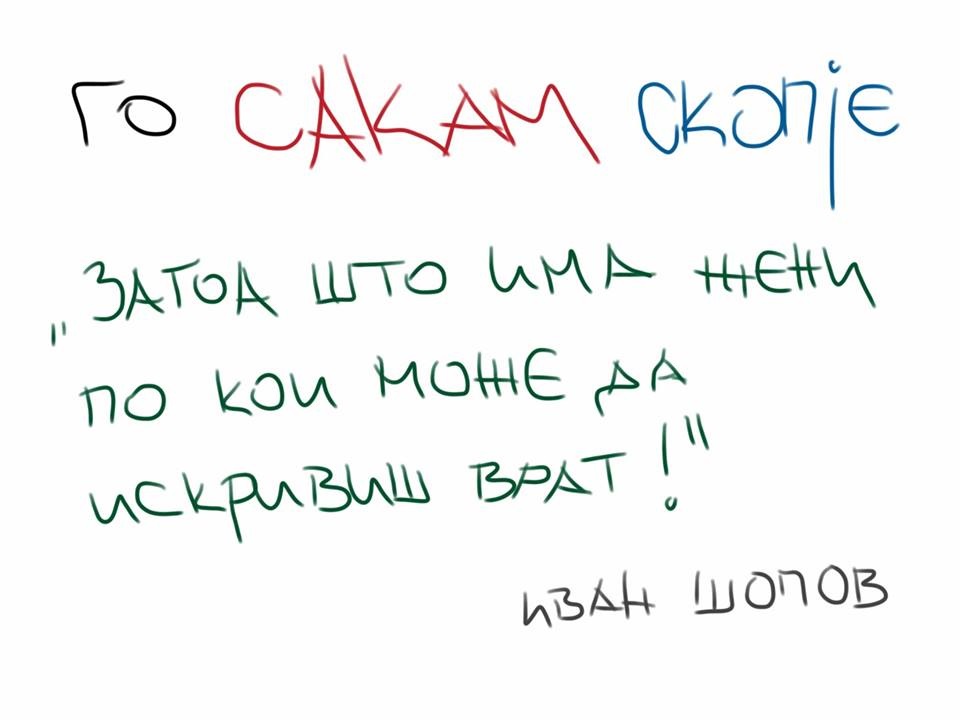 ГО САКАМ СКОПЈЕ
„ЗАТОА ШТО ИМА ЖЕНИ
ПО КОИ МОЖЕ ДА
ИСКРИВИШ ВРАТ!"
ИВАН ШОПОВ